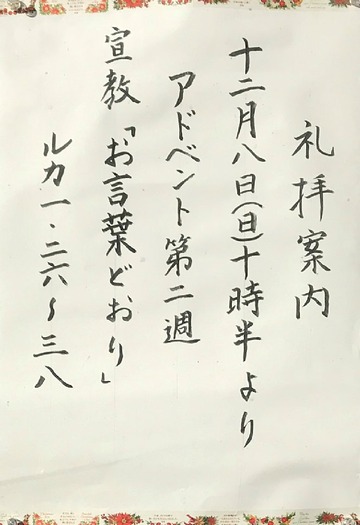 礼拝案内
十二月八日(日)十時半より
アドベント第二週
宣教「お言葉どおり」
ルカ一・二六〜三八